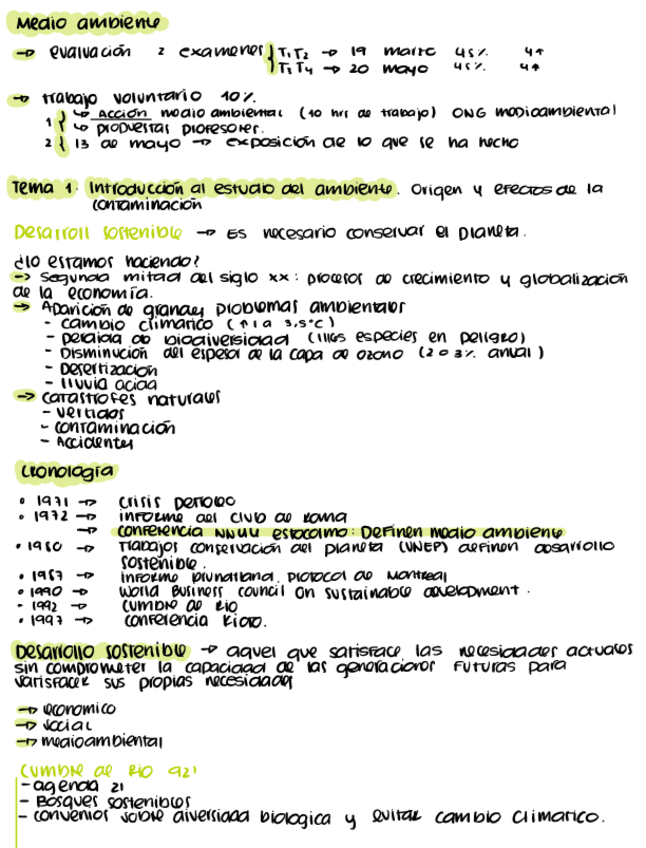 Medio ambiente
→ evaluación 2 examenes { T1 T2 → 19 marzo 45% 4↑
T3 T4 → 20 mayo 45% 4↑
→ trabajo voluntario 10%.
1 { ↳ Acción medio ambiental (10 hrs de trabajo) ONG medioambiental
↳ propuestas profesores.
2 { 13 de mayo → exposición de lo que se ha hecho
Tema 1. Introducción al estudio del ambiente. Origen y efectos de la
contaminación
Desarroll sostenible → Es necesario conservar el planeta.
¿lo estamos haciendo?
→ Segunda mitad del siglo XX: procesos de crecimiento y globalización
de la economía.
→ Aparición de grandes problemas ambientales
- cambio climatico (↑1 a 3,5°C)
- perdida de biodiversidad (11165 especies en peligro)
- Disminución del espesor de la capa de ozono (2 o 3% anual)
- Desertización
- lluvia acida
→ catastrofes naturales
- vertidos
- contaminación
- Accidentes
Cronología
• 1971 → crisis petroleo
• 1972 → informe del club de Roma
→ conferencia NNUU estocolmo: Definen medio ambiente
• 1980 → Trabajos conservación del planeta (UNEP) definen desarrollo
sostenible.
• 1987 → informe brundtland, protocol de Montreal
• 1990 → World Business council on sustainable development.
• 1992 → cumbre de Rio
• 1997 → conferencia Kioto.
Desarrollo sostenible → aquel que satisface las necesidades actuales
sin comprometer la capacidad de las generaciones futuras para
satisfacer sus propias necesidades
→ economico
→ social
→ medioambiental
Cumbre de Rio 92'
- agenda 21
- Bosques sostenibles
- convenios sobre diversidad biologica y evitar cambio climatico.